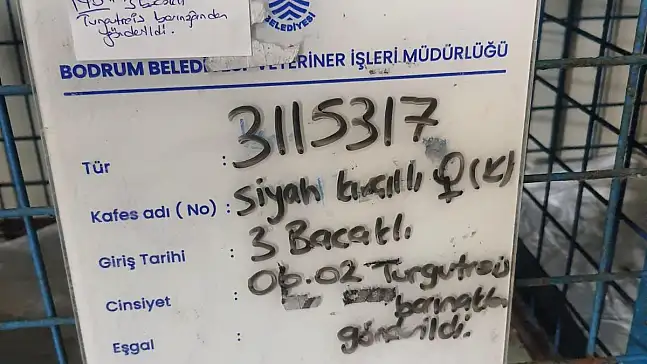 3 Bacaklı
Turgutreis barınağından
gönderildi.
BELEDİYESİ
BODRUM BELEDİYESİ VETERİNER İŞLERİ MÜDÜRLÜĞÜ
3115317
Tür :
Kafes adı ( No) : Siyah kırçıllı ♀ (K)
Giriş Tarihi : 3 Bacaklı
Cinsiyet : 06.02 Turgutreis
barınaktan
Eşgal : gönderildi.